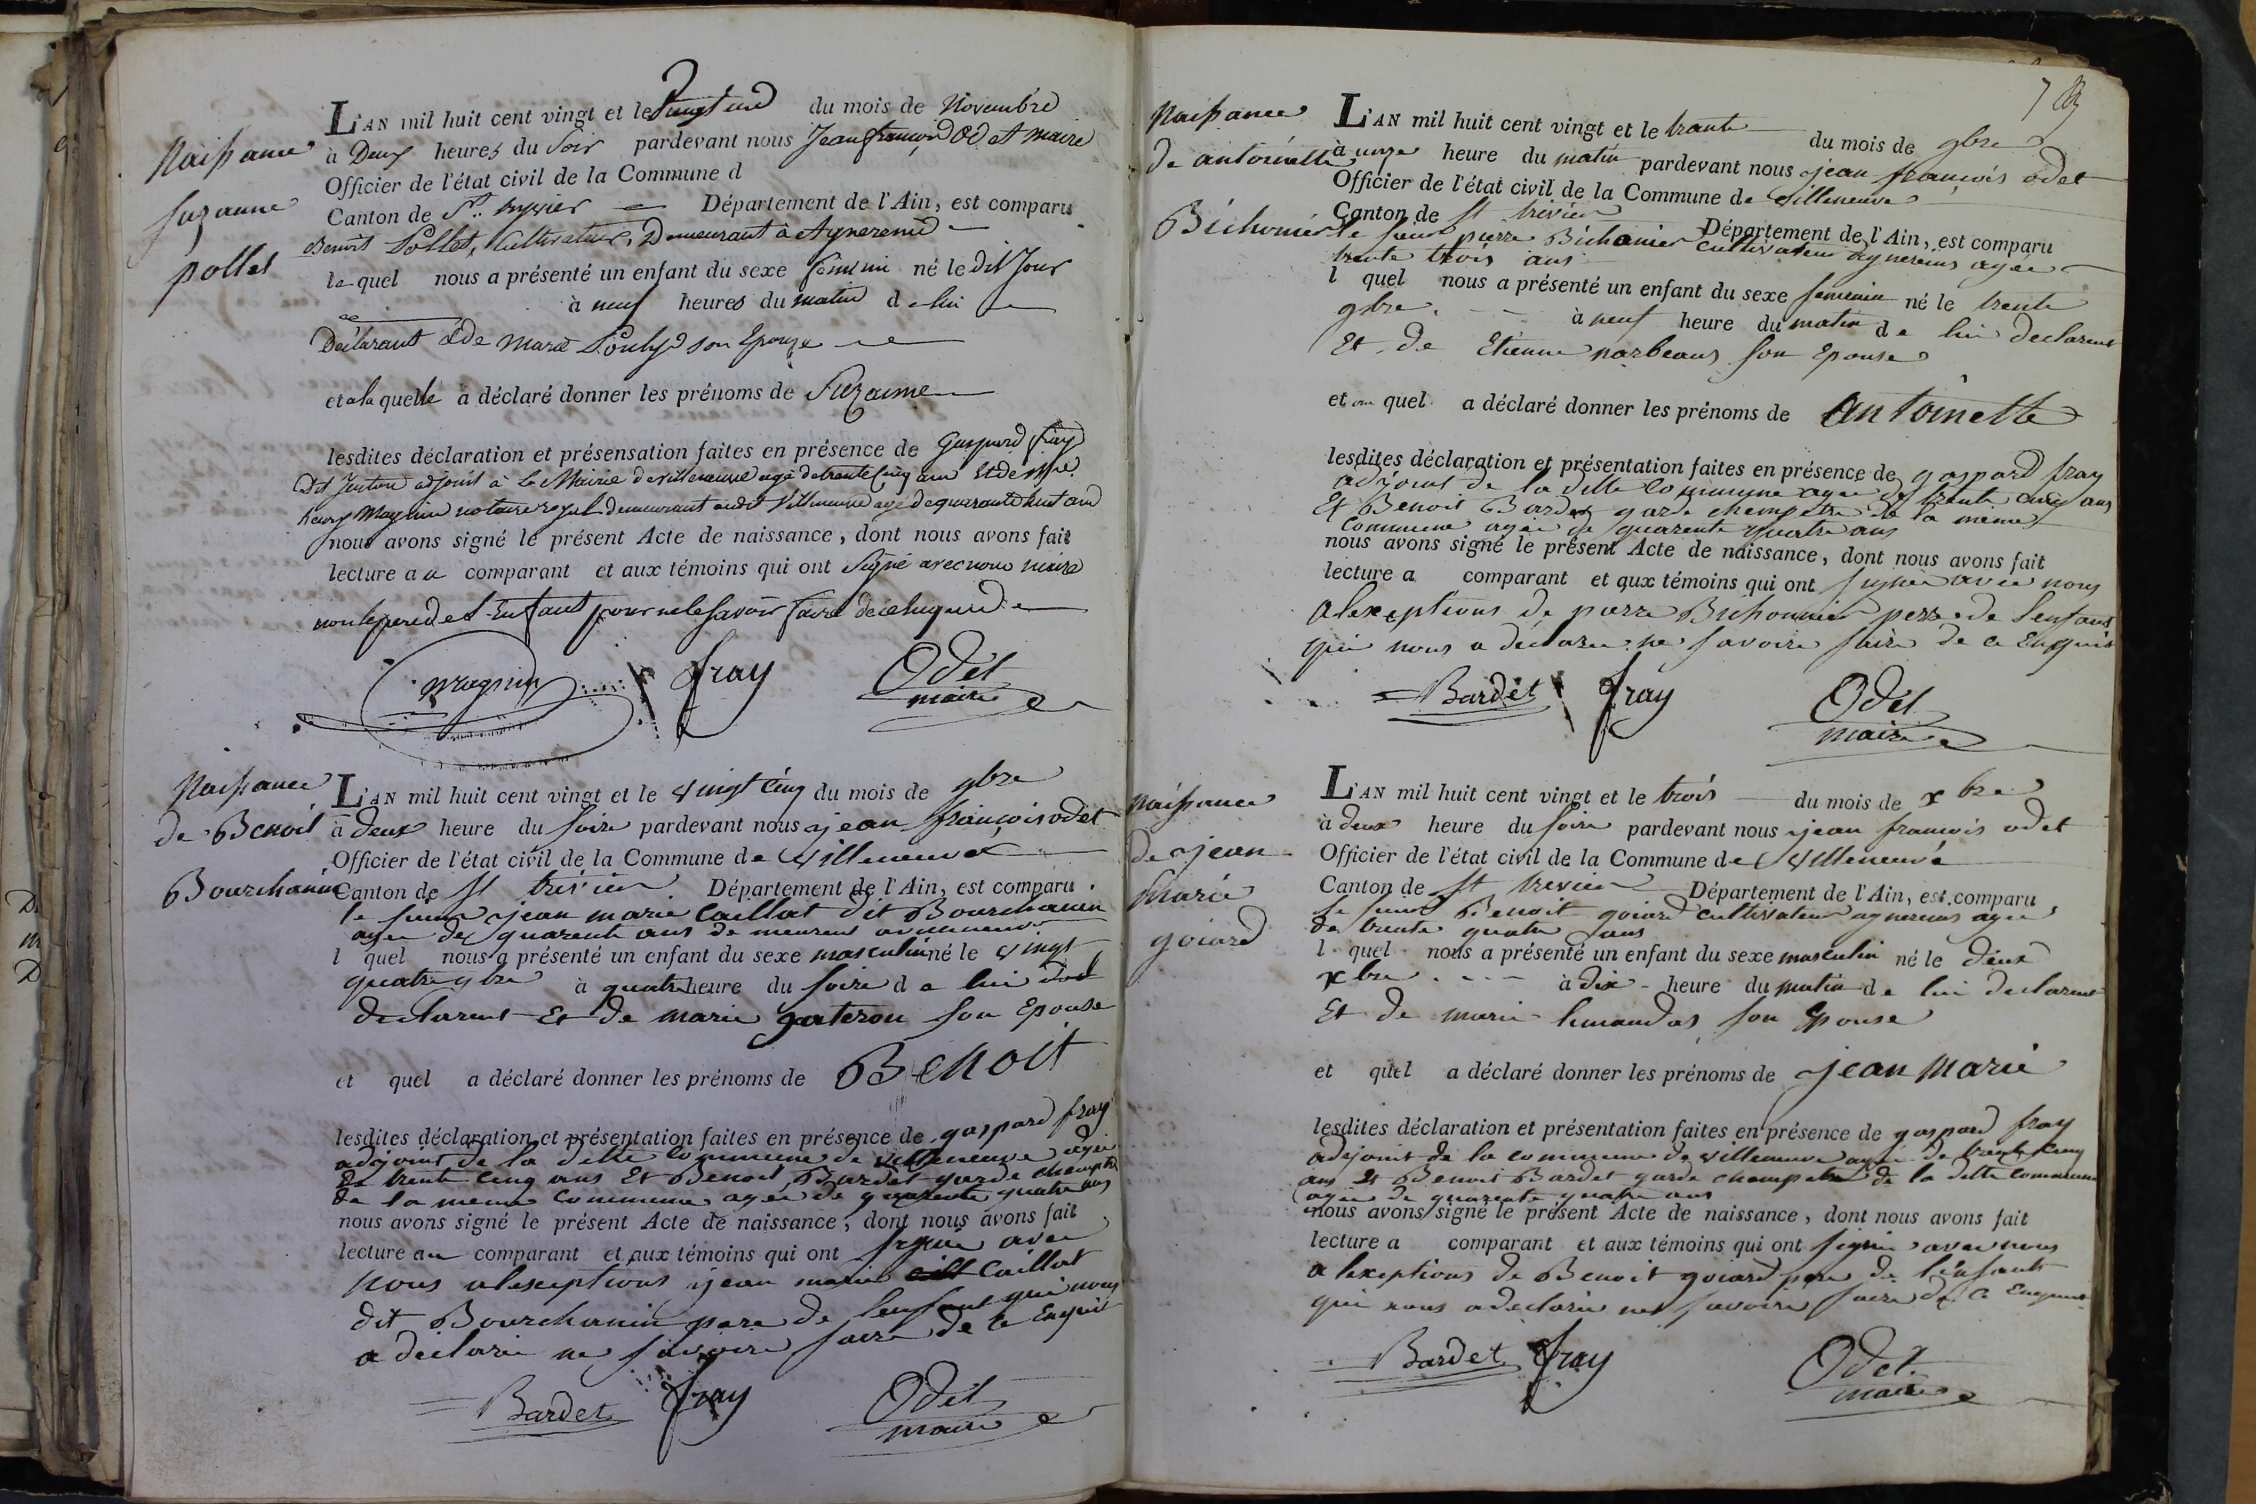 Naissance
Suzanne
pollet
L'AN mil huit cent vingt et le vingt un du mois de Novembre
à Deux heures du Soir pardevant nous Jean françois Odet maire
Officier de l'état civil de la Commune d
Canton de St. Département de l'Ain, est comparu
Benoit Pollet, Cultivateur, Demeurant à Aynereins
le quel nous a présenté un enfant du sexe né le dit Jour
à neuf heures du matin de lui
Déclarant & de Marie son Epouze
et a la quelle à déclaré donner les prénoms de Suzanne
lesdites déclaration et présensation faites en présence de Gaspard fray
Dit adjoint à la Mairie de villeneuve agé de trente Cinq ans Et de
henry Magnin notaire royal demeurant audit Villeneuve agé de quarante huit ans
nous avons signé le présent Acte de naissance, dont nous avons fait
lecture a u comparant et aux témoins qui ont Signé avec nous maire
non le pere de l'Enfant pour ne le Savoir faire de ce Enquis
magnin fray Odet
maire
Naissance
de Benoit
Bourchanin
L'AN mil huit cent vingt et le vingt cinq du mois de 9bre
à deux heure du soire pardevant nous jean françois odet
Officier de l'état civil de la Commune de villeneuve
Canton de St trévier Département de l'Ain, est comparu
le sieur jean marie Caillat dit Bourchanin
agee de quarente ans de meurent
l quel nous a présenté un enfant du sexe masculin né le vingt
quatre 9bre à quatre heure du soire d e lui dit
declarent Et de marie gateron son Epouse
et quel a déclaré donner les prénoms de Benoit
lesdites déclaration et présentation faites en présence de gaspard fray
adjoint de la ditte Commune de villeneuve agée
de trente cinq ans Et Benoit Bardet garde champetre
de la meme Commune agee de quarente quatre ans
nous avons signé le présent Acte de naissance, dont nous avons fait
lecture au comparant et aux témoins qui ont signie avec
nous alexceptions jean marie Caillat
dit Bourchanin pere de lenfant qui nous
a déclarée ne savoire faire de ce Enquit
Bardet fray Odet
maire
Naissance
de antoinette
Bichonier
L'AN mil huit cent vingt et le trante du mois de 9bre
à unze heure du matin pardevant nous jean françois odet
Officier de l'état civil de la Commune de villeneuve
Canton de St trevier Département de l'Ain, est comparu
le sieur pierre Bichonier cultivateur aynereins agée
trente trois ans
l quel nous a présenté un enfant du sexe femenin né le trente
9bre. à neuf heure du matin d e lui declarent
Et de Etienne son Epouse
et quel a déclaré donner les prénoms de antoinette
lesdites déclaration et présentation faites en présence de gaspard fray
adjoint de la ditte Commune agee de trente cinq ans
Et Benoit Bardet garde champetre de la meme
Commune agée de quarente quatre ans
nous avons signé le présent Acte de naissance, dont nous avons fait
lecture a comparant et aux témoins qui ont signee avec nous
alexceptions de pierre Bichonnier perre de lenfant
qui nous a declaree ne savoire faire de ce Enquis
Bardet fray Odet
maire
Naissance
de jean
marie
goiard
L'AN mil huit cent vingt et le trois du mois de xbre
à deux heure du soire pardevant nous jean françois odet
Officier de l'état civil de la Commune de villeneuve
Canton de St trevier Département de l'Ain, est comparu
le sieur Benoit goiard cultivateur aynereins agee
de trente quatre ans
l quel nous a présenté un enfant du sexe masculin né le deux
xbre à dix heure du matin d e lui declarent
Et de marie son Epouse
et quel a déclaré donner les prénoms de jean marie
lesdites déclaration et présentation faites en présence de gaspard fray
adejoint de la commune de villeneuve agee de trente Cinq
ans Et Benoit Bardet garde champetre de la ditte commune
agee de quarente quatre ans
nous avons signé le présent Acte de naissance, dont nous avons fait
lecture a comparant et aux témoins qui ont signie avec nous
a lexceptions de Benoit goiard pere de lenfant
qui nous a declarie ne savoire faire de ce Enquis
Bardet fray Odet
maire